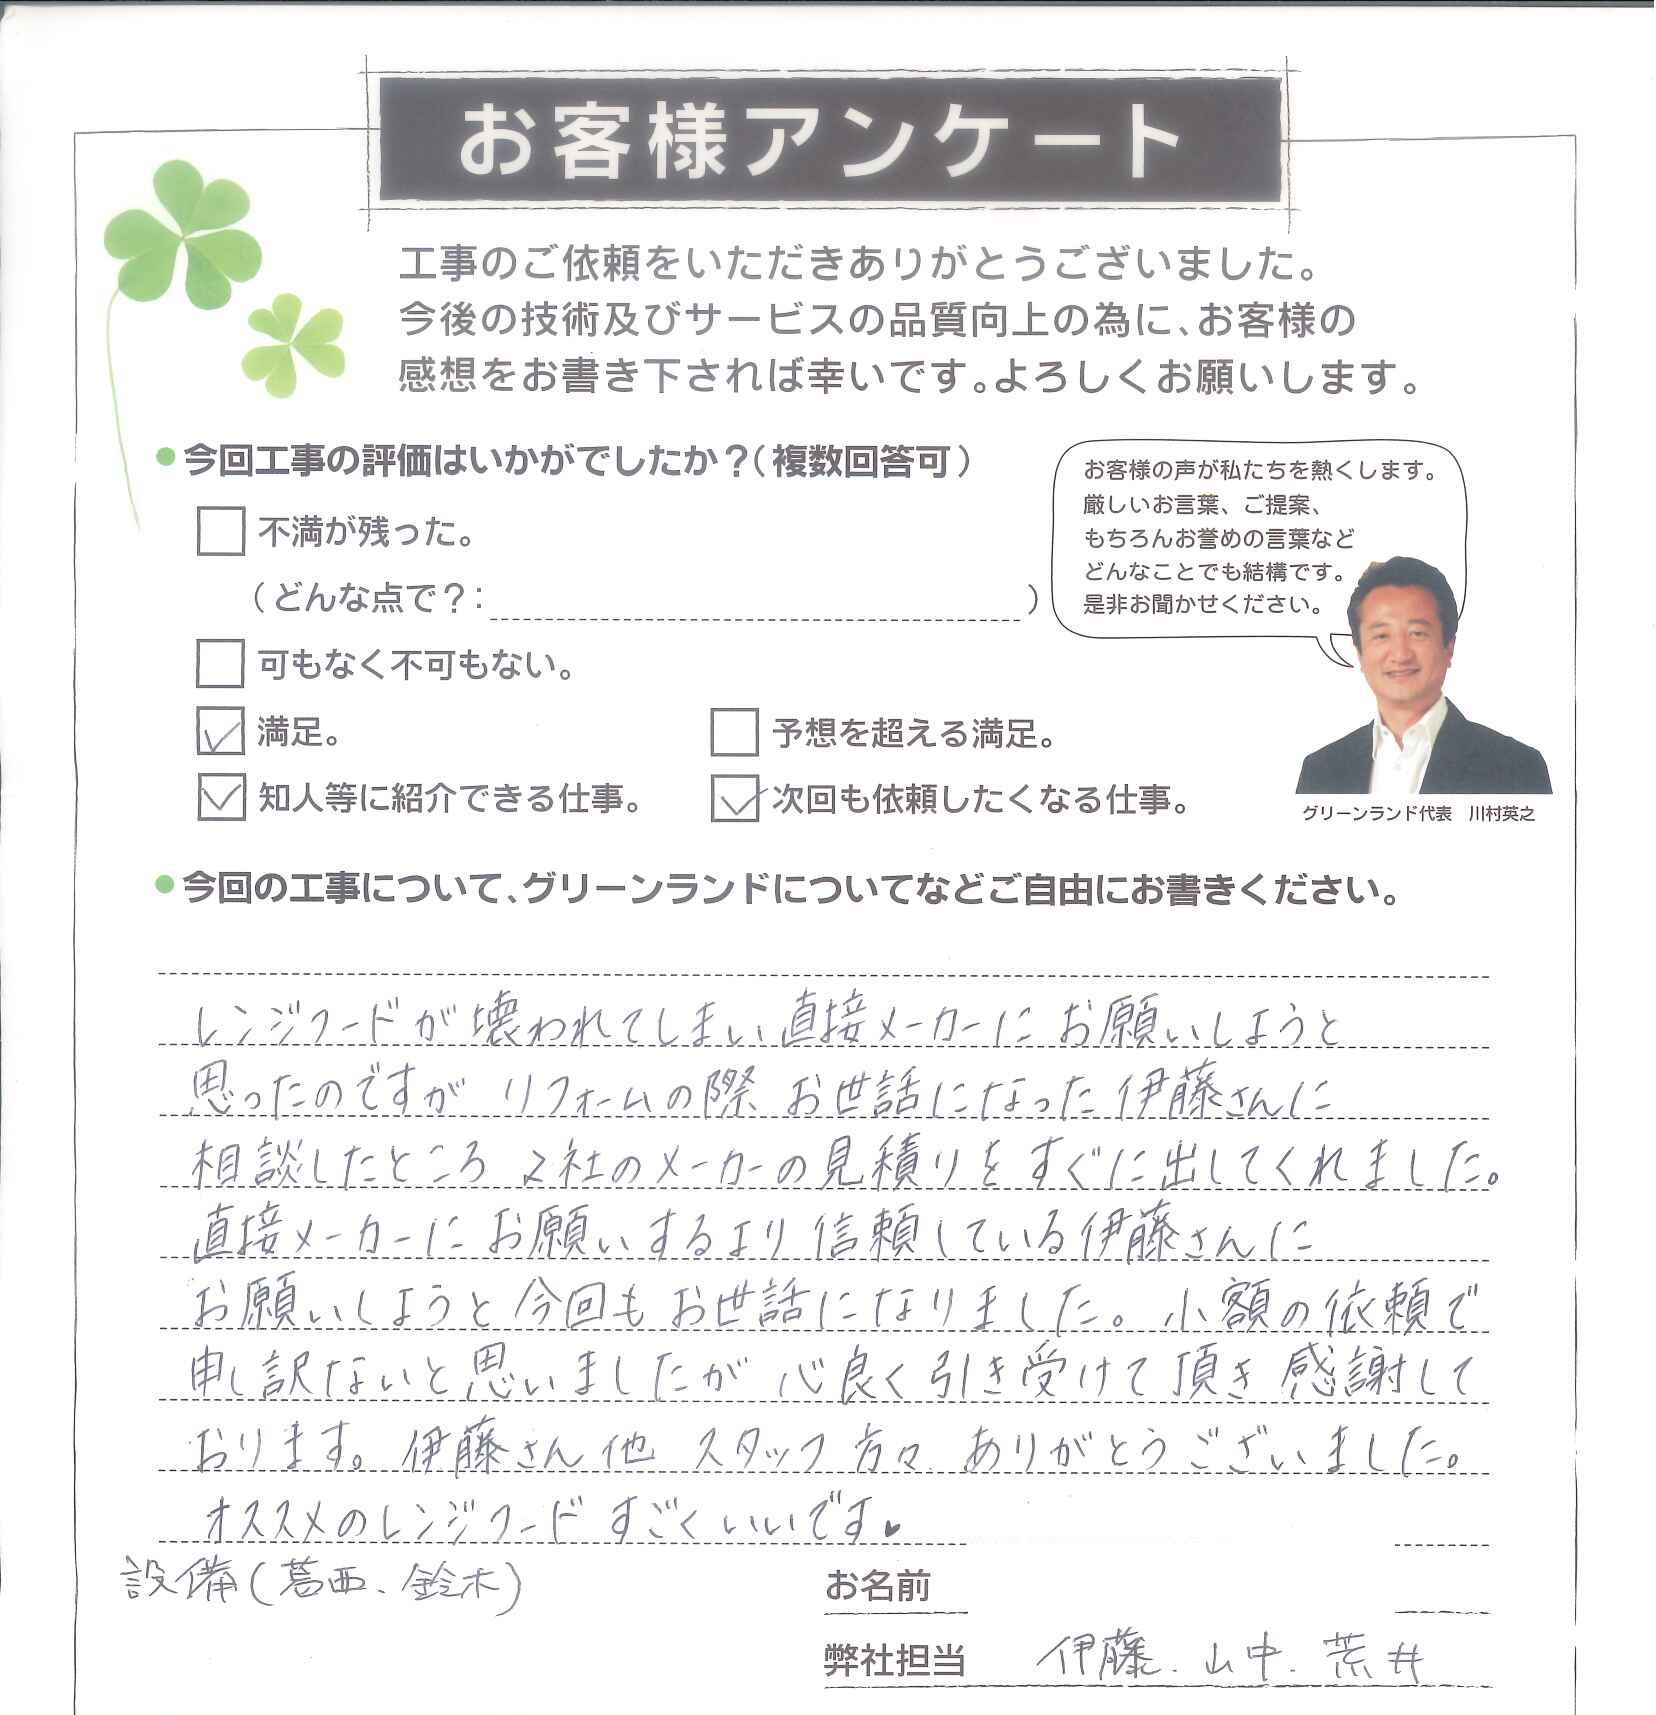 お客様アンケート
工事のご依頼をいただきありがとうございました。
今後の技術及びサービスの品質向上の為に、お客様の
感想をお書き下されば幸いです。よろしくお願いします。
今回工事の評価はいかがでしたか？（複数回答可）
不満が残った。
（どんな点で？：　）
可もなく不可もない。
満足。
予想を超える満足。
知人等に紹介できる仕事。
次回も依頼したくなる仕事。
お客様の声が私たちを熱くします。
厳しいお言葉、ご提案、
もちろんお誉めの言葉など
どんなことでも結構です。
是非お聞かせください。
グリーンランド代表　川村英之
今回の工事について、グリーンランドについてなどご自由にお書きください。
レンジフードが壊われてしまい直接メーカーにお願いしようと
思ったのですが リフォームの際 お世話になった伊藤さんに
相談したところ 2社のメーカーの見積りをすぐに出してくれました。
直接メーカーにお願いするより信頼している伊藤さんに
お願いしようと今回もお世話になりました。小額の依頼で
申し訳ないと思いましたが 心良く引き受けて頂き 感謝して
おります。伊藤さん他 スタッフ方々 ありがとうございました。
オススメのレンジフード すごくいいです♥
設備(葛西、鈴木)
お名前
弊社担当 伊藤、山中、荒井